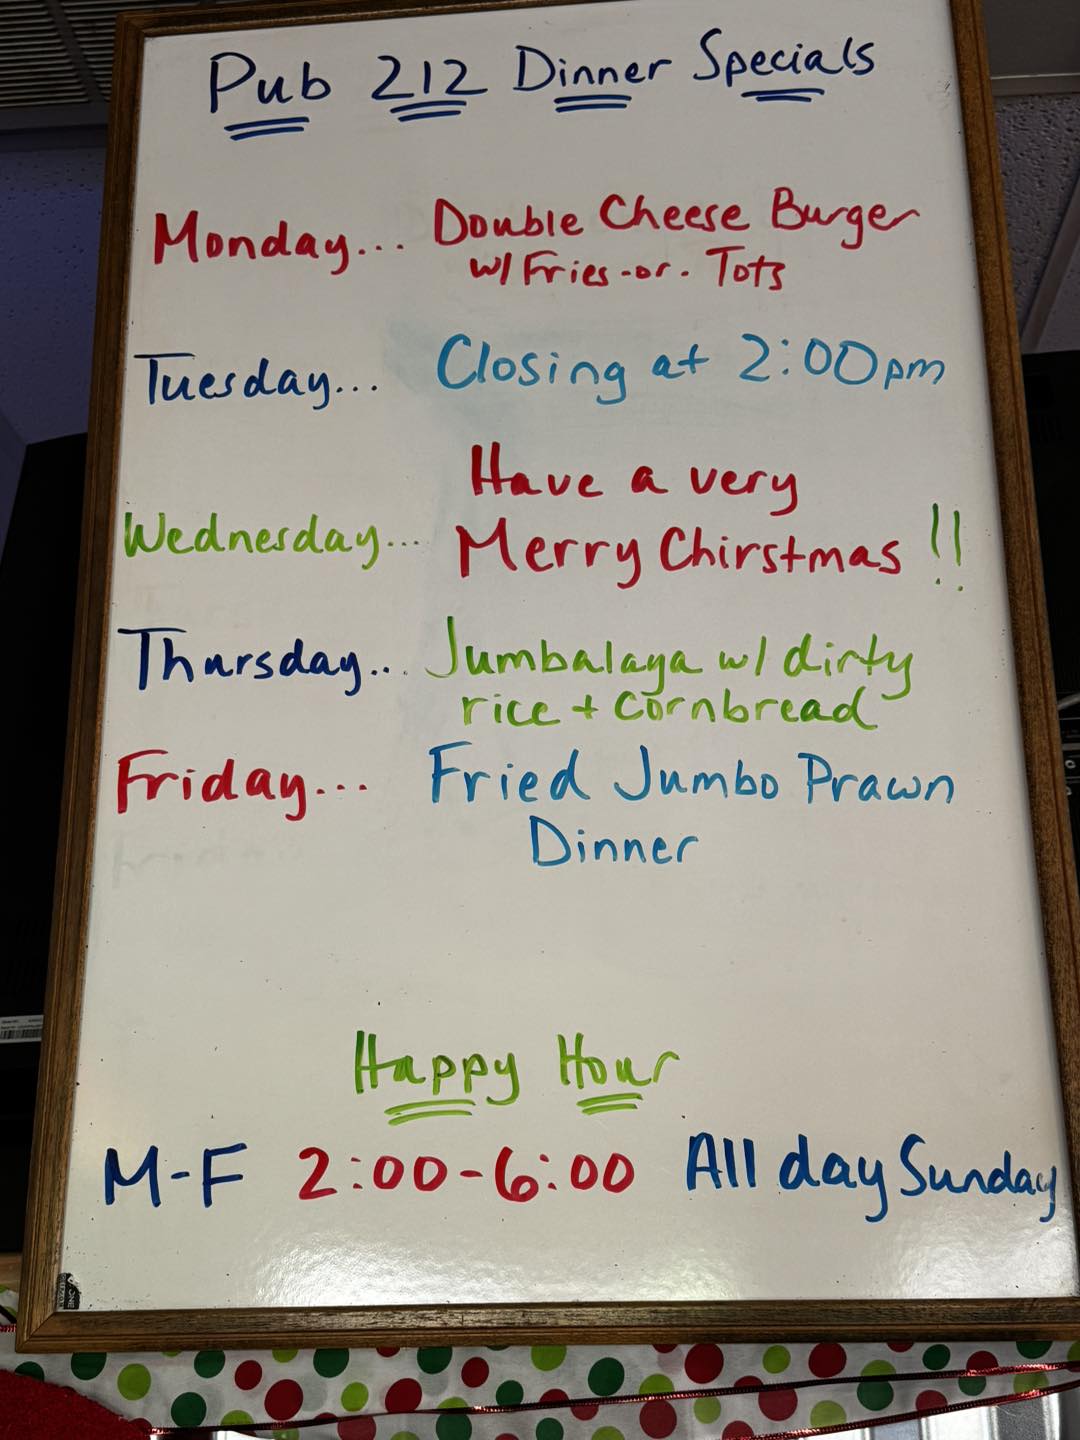 Pub 212 Dinner Specials
Monday... Double Cheese Burger
w/ Fries -or- Tots
Tuesday... Closing at 2:00pm
Have a very
Wednesday... Merry Chirstmas !!
Thursday... Jumbalaya w/ dirty
rice + cornbread
Friday... Fried Jumbo Prawn
Dinner
Happy Hour
M-F 2:00-6:00 All day Sunday